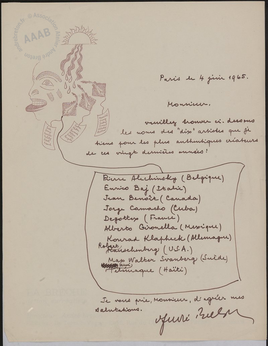 AAAB
Paris le 4 juin 1965.
Monsieur,
veuillez trouver ci-dessous
les noms des "dix" artistes que je
tiens pour les plus authentiques créateurs
de ces vingt dernières années :
Pierre Alechinsky (Belgique)
Enrico Baj (Italie)
Jean Benoît (Canada)
Jorge Camacho (Cuba)
Degottex (France)
Alberto Gironella (Mexique)
Konrad Klapheck (Allemagne)
Robert
Rauschenberg (U.S.A.)
Max Walter Svanberg (Suède)
Télémaque (Haïti)
Je vous prie, Monsieur, d'agréer mes
salutations.
André Breton